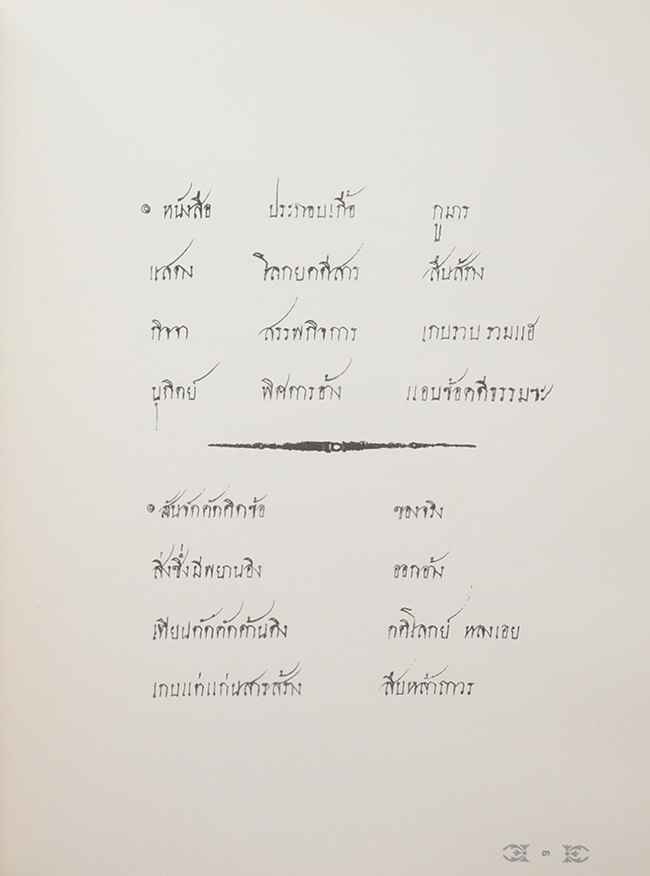 ๏ หนังสือ ประกอบเกื้อ กูมาร
แสดง โลกยคดีสาร สืบสร้าง
กิจจา สรรพกิจการ เกบรวบ รวมแฮ
นุกิตย์ พิศดารอ้าง แอบข้อคดีธรรมซะ
๏ สันจักคัดคิดข้อ ของจริง
สิ่งซึ่งมีพยานอิง ออกอ้าง
เทียบคัดคัดค้านติง คดีโลกย์ หลงเอย
เกบแต่แก่นสารสร้าง สืบหล้าถาวร
๓